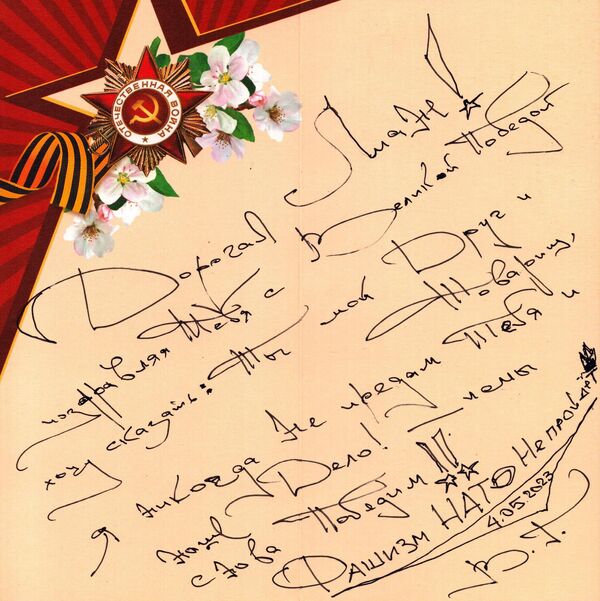 ОТЕЧЕСТВЕННАЯ ВОЙНА
Дорогая Лиане!
поздравляя Тебя с Великой Победой
хочу сказать: Ты мой Друг и Товарищ,
я Никогда Не предам Тебя и
Наше Дело! И мы
снова Победим!!!
ФАШИЗМ НАТО Не пройдёт
4.05.2023
В.Г.